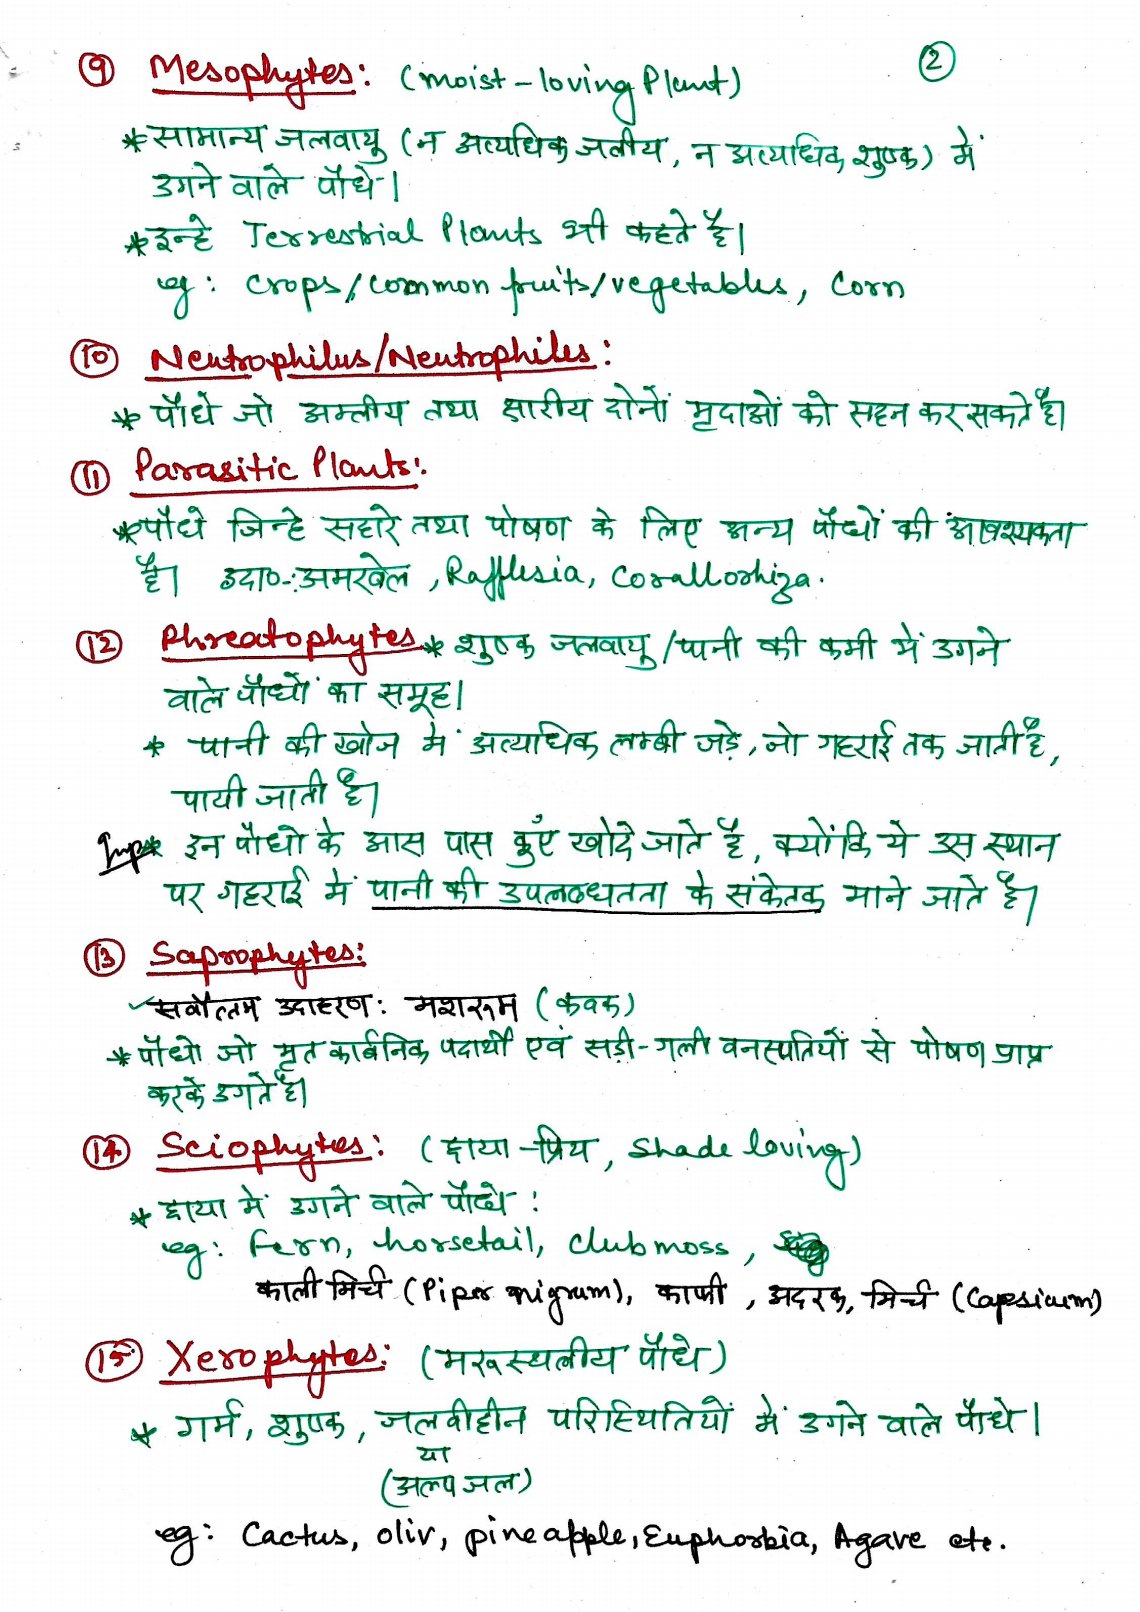 ②
⑨ Mesophytes: (moist-loving Plant)
* सामान्य जलवायु (न अत्यधिक जलीय, न अत्यधिक शुष्क) में
उगने वाले पौधे।
* इन्हे Terrestrial Plants भी कहते है।
eg: crops/common fruits/vegetables, Corn
⑩ Neutrophilus/Neutrophiles:
* पौधे जो अम्लीय तथा क्षारीय दोनों मृदाओं को सहन कर सकते है।
⑪ Parasitic Plants:
* पौधे जिन्हे सहारे तथा पोषण के लिए अन्य पौधों की आवश्यकता
है। उदा०-: अमरबेल, Rafflesia, Corallorhiza.
⑫ Phreatophytes * शुष्क जलवायु/पानी की कमी में उगने
वाले पौधों का समूह।
* पानी की खोज में अत्यधिक लम्बी जड़े, जो गहराई तक जाती है,
पायी जाती है।
Imp* इन पौधो के आस पास कुएँ खोदे जाते है, क्योंकि ये उस स्थान
पर गहराई में पानी की उपलब्धतता के संकेतक माने जाते है।
⑬ Saprophytes:
✓सर्वोत्तम उदाहरण: मशरूम (कवक)
* पौधो जो मृत कार्बनिक पदार्थों एवं सड़ी-गली वनस्पतियों से पोषण प्राप्त
करके उगते है।
⑭ Sciophytes: (छाया-प्रिय, Shade loving)
* छाया में उगने वाले पौधे:
eg: Fern, horsetail, club moss,
काली मिर्च (Piper nigrum), काफी, अदरक, मिर्च (Capsicum)
⑮ Xerophytes: (मरूस्थलीय पौधे)
* गर्म, शुष्क, जलवीहीन परिस्थितियों में उगने वाले पौधे।
या
(अल्प जल)
eg: Cactus, oliv, pineapple, Euphorbia, Agave etc.